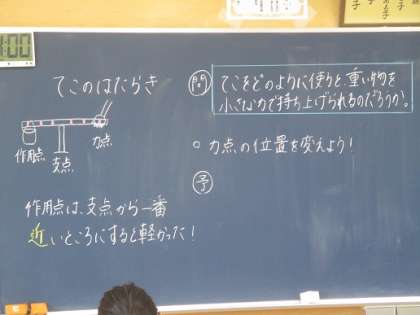 1:00
てこのはたらき
作用点
支点
力点
作用点は、支点から一番
近いところにすると軽かった!
問
てこをどのように使うと、重い物を
小さな力で持ち上げられるのだろうか。
○ 力点の位置を変えよう!
予